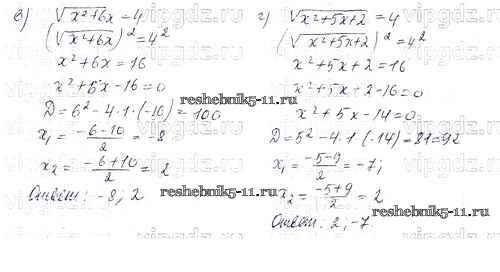 в) √x²+6x = 4
(√x²+6x)² = 4²
x²+6x = 16
x²+6x-16=0
D=6²-4·1·(-16)=100
x₁ = (-6-10)/2 = -8
x₂ = (-6+10)/2 = 2
Ответ: -8; 2
г) √x²+5x+2 = 4
(√x²+5x+2)² = 4²
x²+5x+2=16
x²+5x+2-16=0
x²+5x-14=0
D=5²-4·1·(-14)=81=9²
x₁ = (-5-9)/2 = -7;
x₂ = (-5+9)/2 = 2
Ответ: 2; -7.
reshebnik5-11.ru
reshebnik5-11.ru
reshebnik5-11.ru